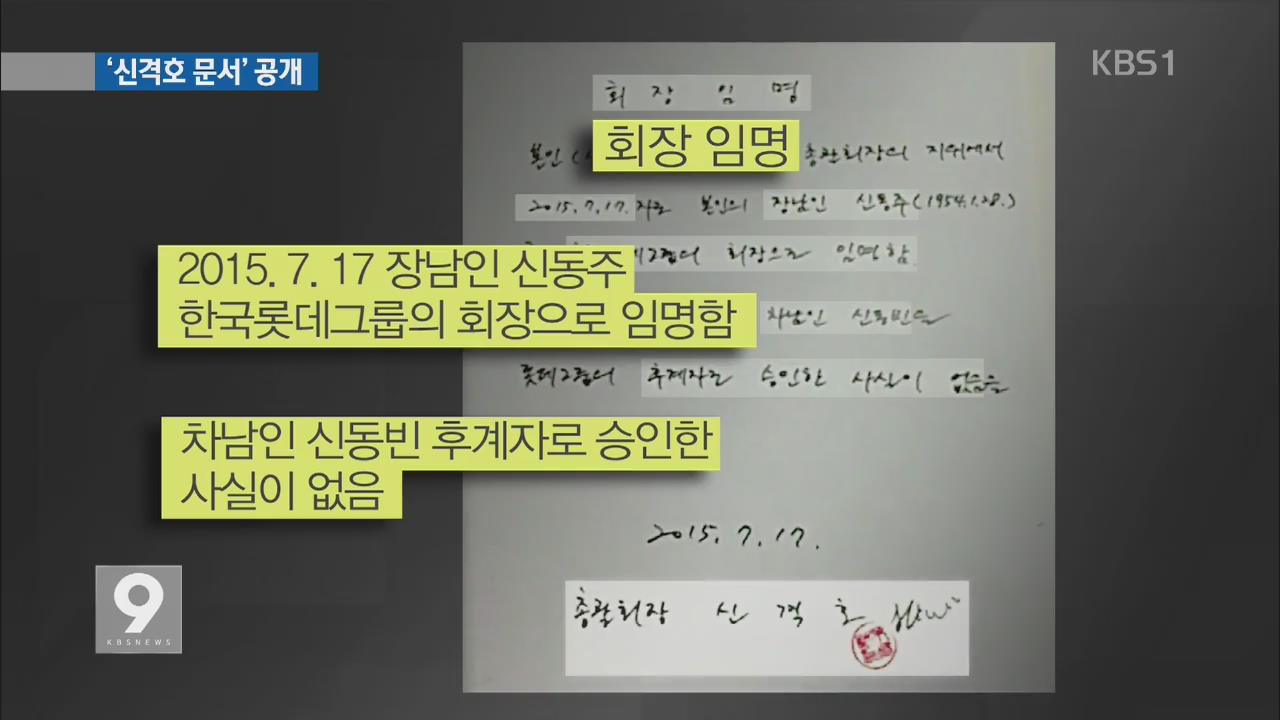 ‘신격호 문서’ 공개
KBS1
회 장 임 명
회장 임명
본인 총괄회장의 지위에서
2015. 7. 17. 자로 본인의 장남인 신동주(1954.1.28.)
회장으로 임명함.
2015. 7. 17 장남인 신동주
한국롯데그룹의 회장으로 임명함
차남인 신동빈을
롯데그룹의 후계자로 승인한 사실이 없음을
차남인 신동빈 후계자로 승인한
사실이 없음
2015. 7. 17.
총괄회장 신 격 호
9
KBSNEWS